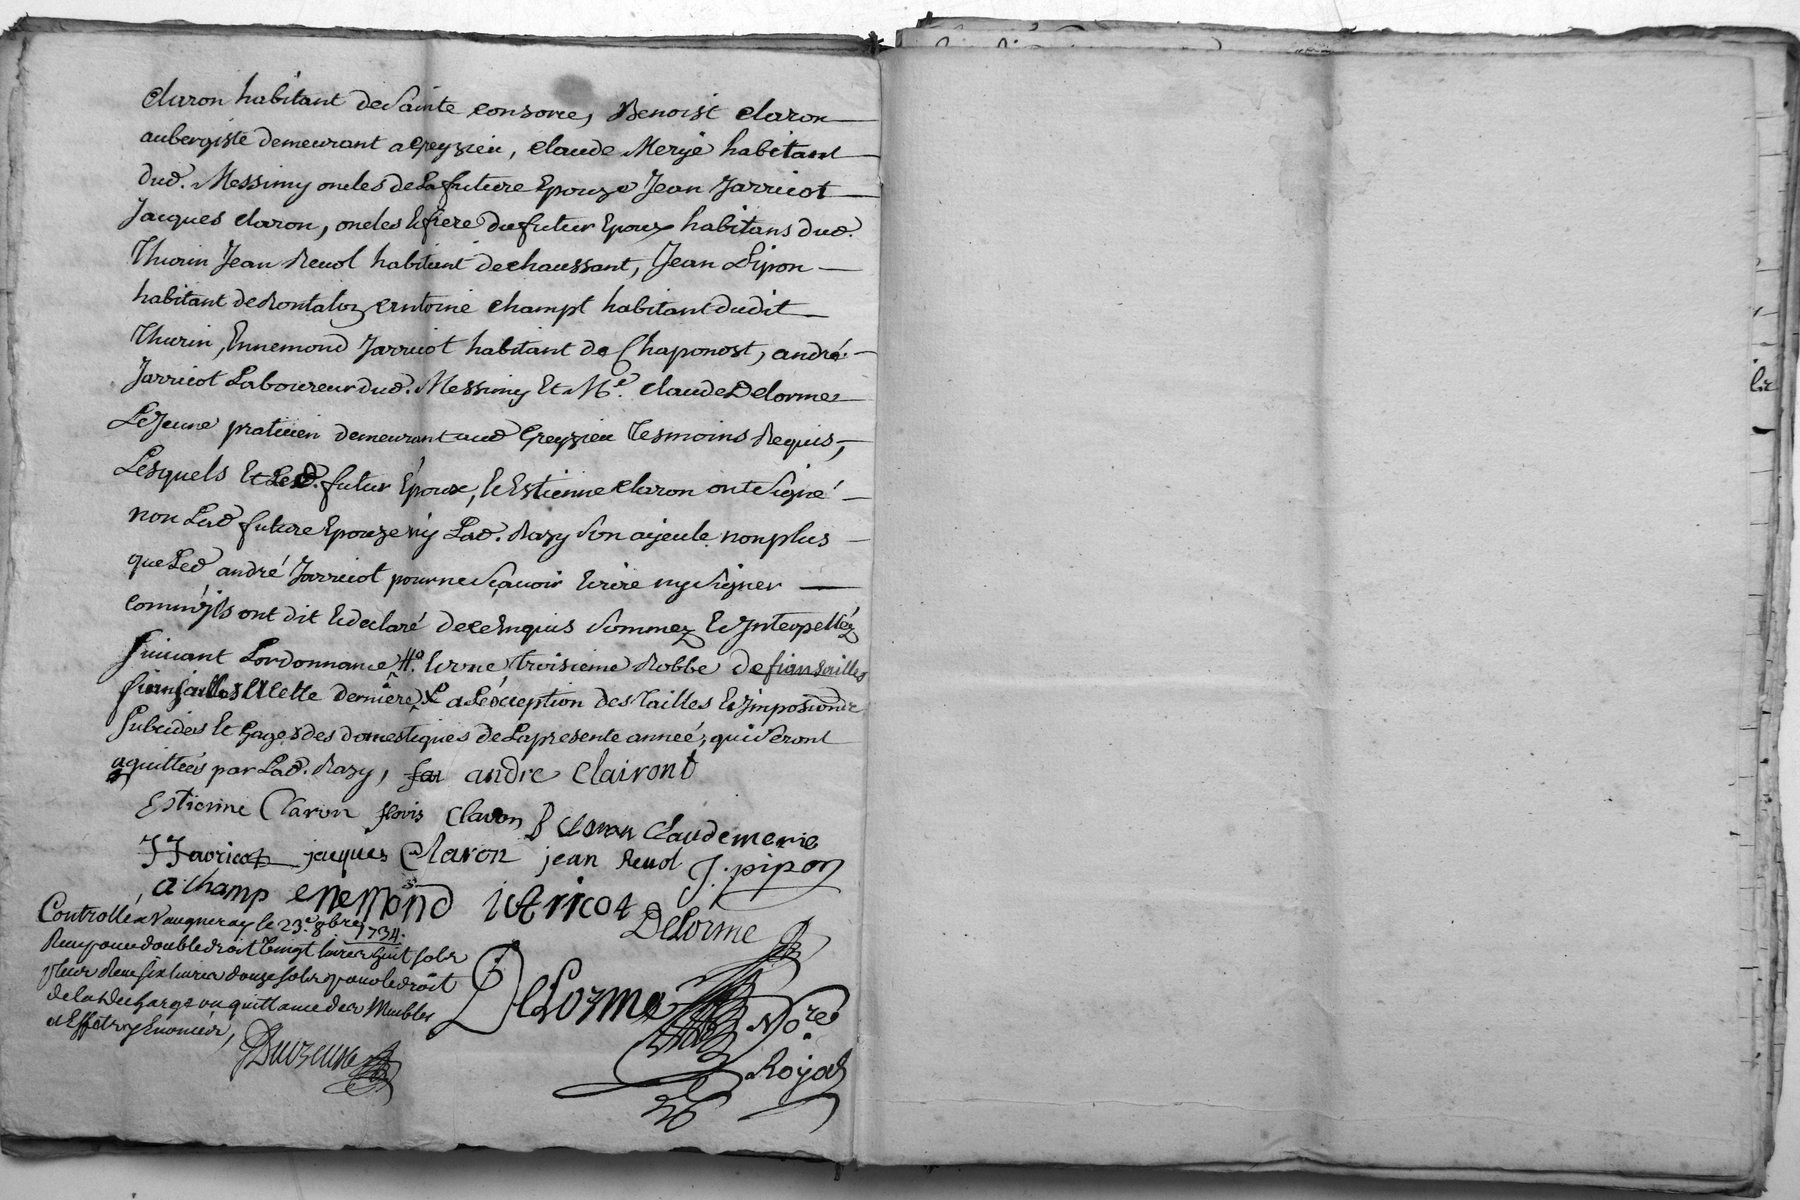 Claron habitant de Sainte Consorce, Benoist Claron
aubergiste demeurant a Greyzieu, Claude Merije habitant
dud. Messimy oncles de La future Epouze Jean Jarricot
Jacques Claron, oncles & frere du futur Epoux habitans dud.
Thurin Jean Reuol habitant de chaussant, Jean Pipon
habitant de Rontalon Antoine champt habitant dudit
Thurin, Ennemond Jarricot habitant de Chaponost, andré
Jarricot Laboureur dud. Messimy Et Me. Claude Delorme
Le Jeune praticien demeurant aud Greyzieu Tesmoins Requis,
Lesquels Et Led. futur Epoux, & Estienne Claron ont Signé
non Lad future Epouze ny Lad. Razy Son ayeule non plus
que Led andré Jarricot pour ne Sçavoir Ecrire ny Signer
comm'ils ont dit & declaré de ce Enquis Sommez & Interpelléz
Suivant Lordonnance & une troisieme Robbe de fiansailles
a Léxception des Tailles & Impositions
Subcides Et Gages des domestiques de La presente année, qui Seront
aquittées par Lad. Razy, andre Clairont
Estienne Claron Claron B Claron Claude merie
J Jaricot jaques Claron jean Reuol J. pipon
a champ enemond iaricot
Delorme
Controllé a Vaugneray le 23e. 8bre 1734.
Reçu pour double droit Vingt livres huit sols
plus Reçu six livres douze sols pour le droit
de la decharge ou quittance des Meubles
et Effets y Enoncés,
Delorme
Nore
Royal